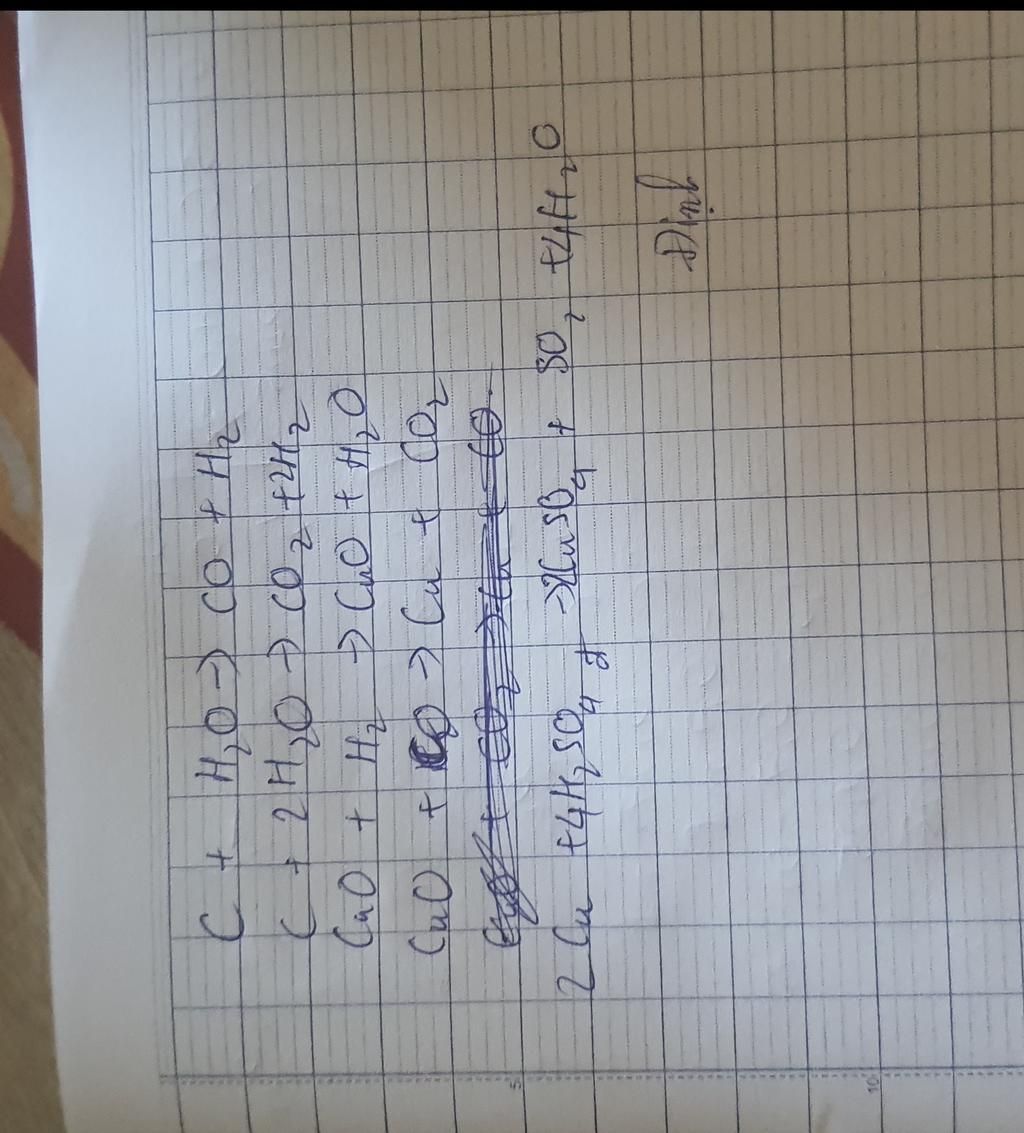 C + H₂O → CO + H₂
C + 2H₂O → CO₂ + 2H₂
CuO + H₂ → CuO + H₂O
CuO + CO → Cu + CO₂
CuO + CO₂ → Cu + CO
2Cu + 4H₂SO₄ đ → 2CuSO₄ + SO₂ + 4H₂O
5
10